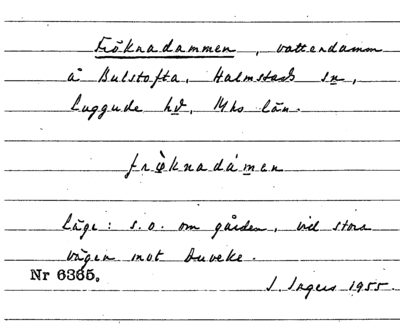 Fröknadammen, vattendamm
å Bulstofta, Halmstads sn,
Luggude hd, Mhs län.
frø̀knadámen
Läge: s.o. om gården, vid stora
vägen mot Duveke.
Nr 6365.
J. Ingers 1955.